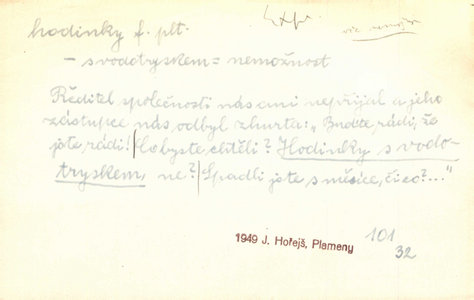 hodinky f. plt.
- s vodotryskem = nemožnost
Ředitel společnosti nás ani nepřijal a jeho
zástupce nás odbyl zhurta: „Buďte rádi, že
jste, rádi! Co byste chtěli? Hodinky s vodo-
tryskem, ne? Spadli jste s měsíce, či co?..."
1949 J. Hořejš, Plameny 101
32